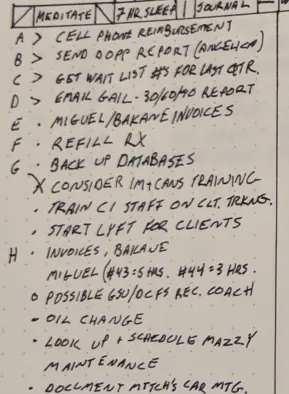 MEDITATE 7 HR SLEEP JOURNAL
A > CELL PHONE REIMBURSEMENT
B > SEND DOPP REPORT (ANGELICA)
C > GET WAIT LIST #S FOR LAST QTR.
D > EMAIL GAIL - 30/60/90 REPORT
E · MIGUEL/BAKANE INVOICES
F · REFILL RX
G · BACK UP DATABASES
X CONSIDER IM+CANS TRAINING
· TRAIN CI STAFF ON CLT. TRKNG.
· START LYFT FOR CLIENTS
H · INVOICES, BAKANE
MIGUEL (#43=5HRS. #44=3 HRS.
o POSSIBLE GSU/DCFS REC. COACH
- OIL CHANGE
· LOOK UP + SCHEDULE MAZZY
MAINTENANCE
· DOCUMENT MITCH'S CAR MTG.